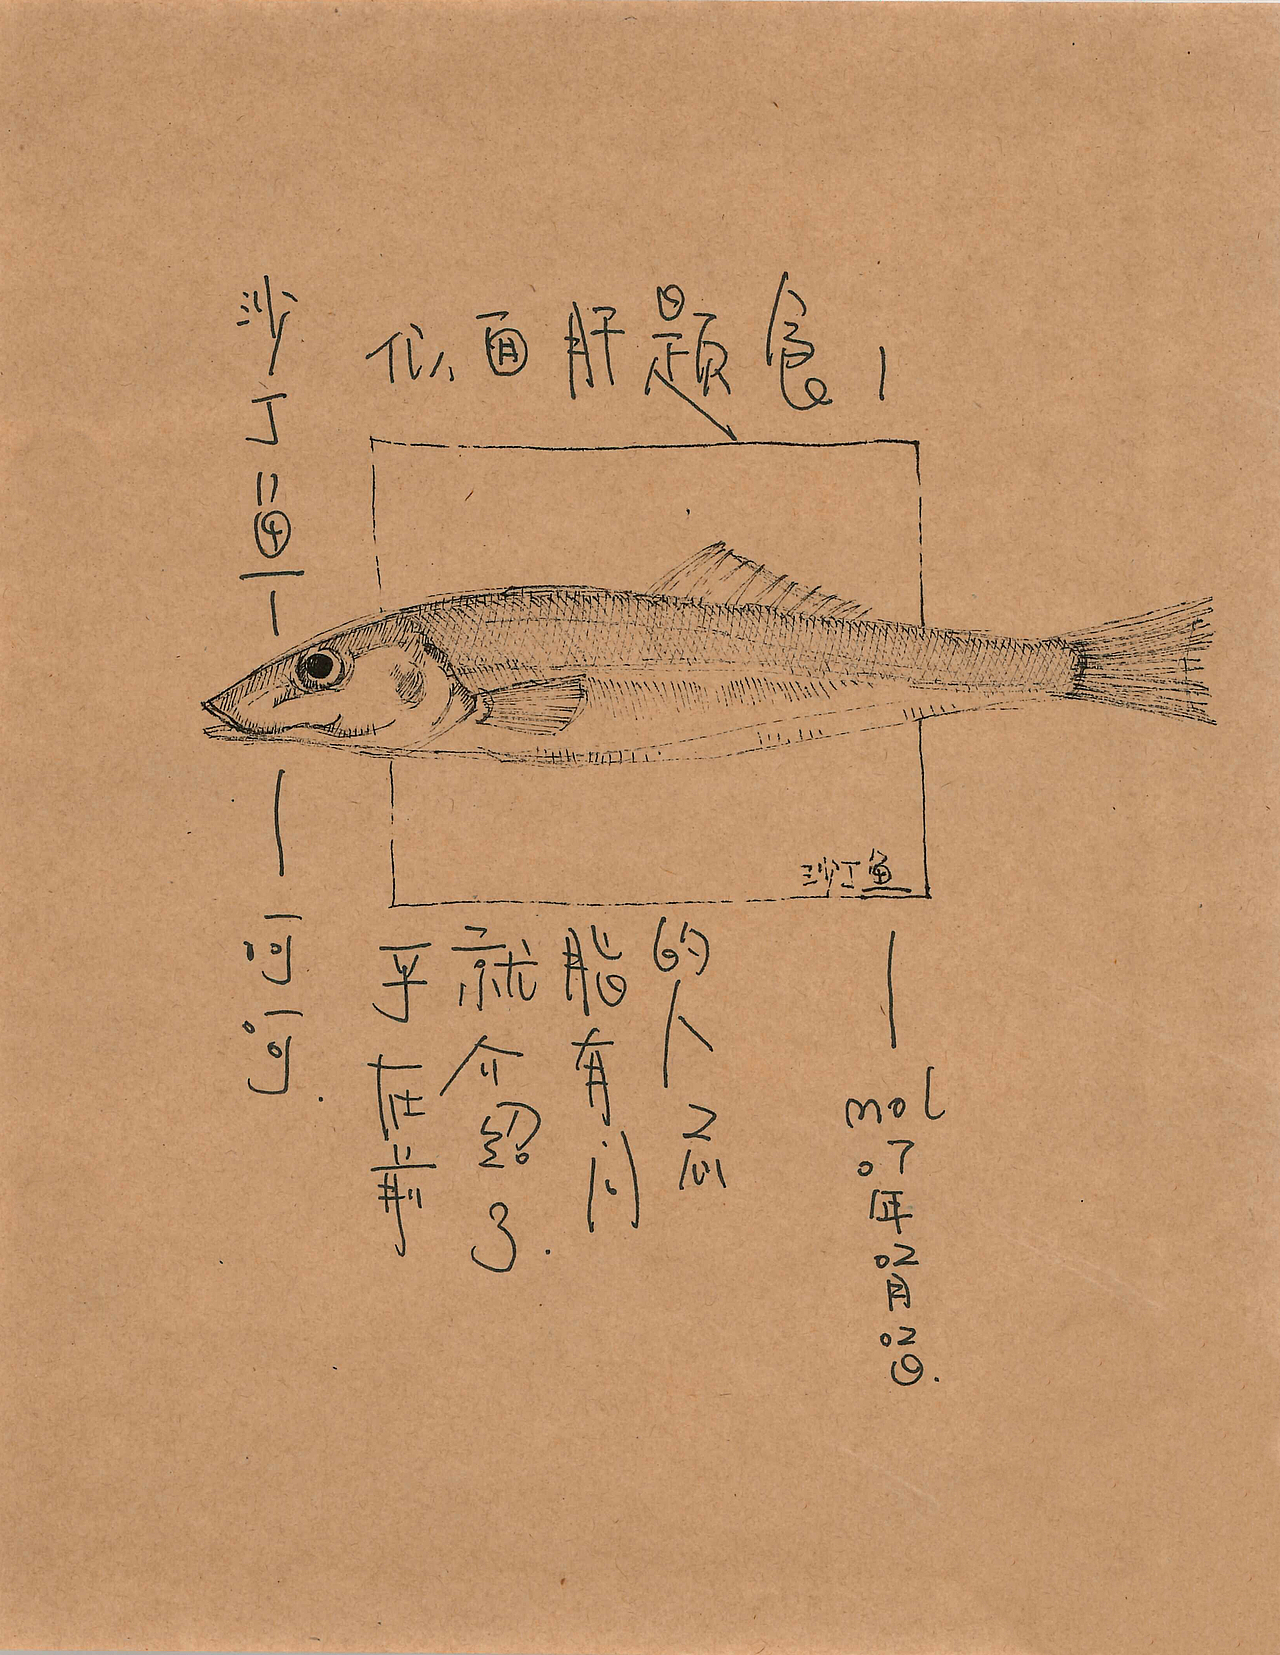 沙丁鱼——呵呵.
似乎在前
面就介绍了.
肝脂有问
题的人忌
食
——mol 07年02月02日.
沙丁鱼